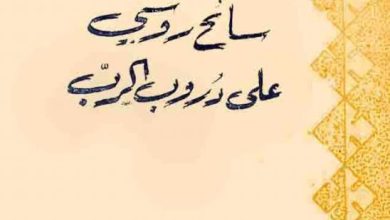 سائح روسي
على دروب الربّ